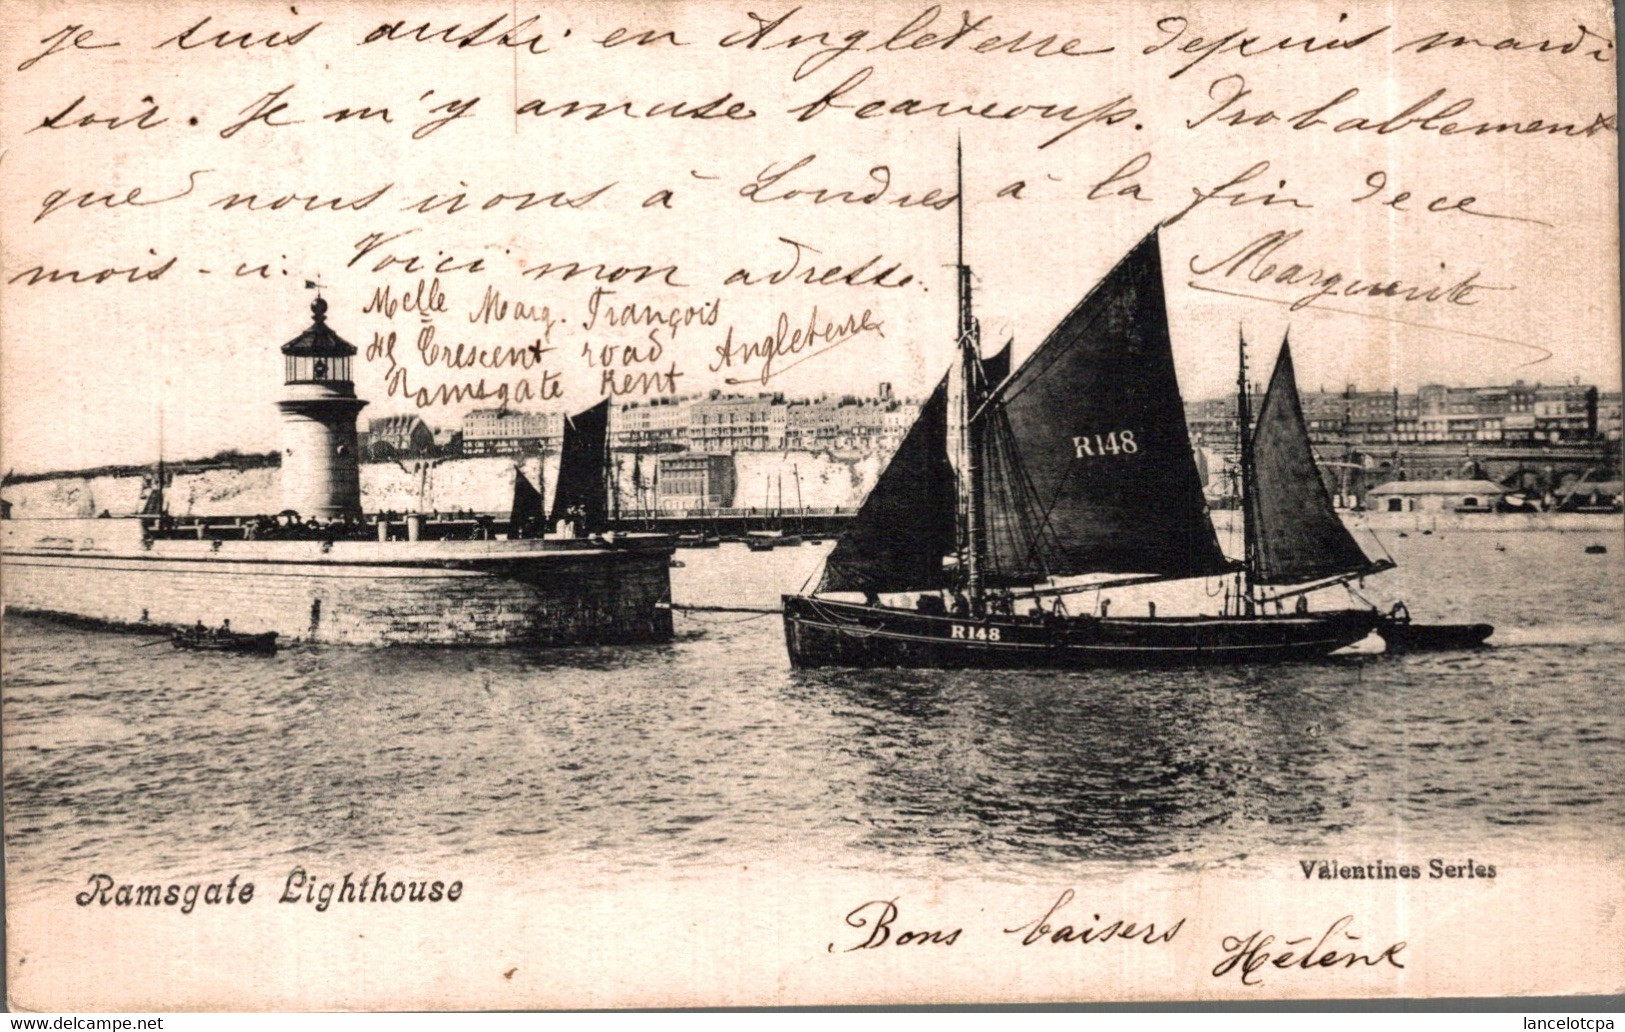 Je suis aussi en Angleterre depuis mardi
soir. Je m'y amuse beaucoup. Probablement
que nous irons à Londres à la fin de ce
mois-ci. Voici mon adresse.
Marguerite
Melle Marg. François
Crescent road Angleterre
Ramsgate Kent
R148
R148
Ramsgate Lighthouse
Valentines Series
Bons baisers
Hélène
lancelotcpa